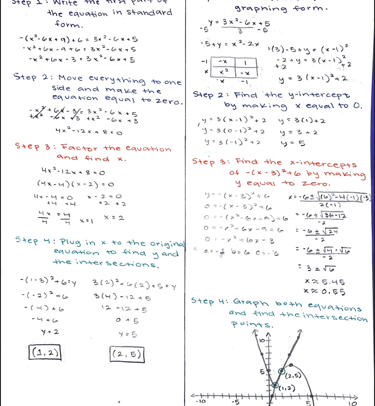 Step 1: Write the first part of
the equation in standard
form.
-(x²-6x+9)+6=3x²-6x+5
-x²+6x-9+6=3x²-6x+5
-x²+6x-3=3x²-6x+5
Step 2: Move everything to one
side and make the
equation equal to zero.
4x²-12x+8=0
Step 3: Factor the equation
and find x.
4x²-12x+8=0
(4x-4)(x-2)=0
4x-4=0 x-2=0
+4 +4 +2 +2
4x/4 = 4/4 x=1 x=2
Step 4: Plug in x to the original
equation to find y and
the intersections.
-(1-3)²+6=y 3(2)²-6(2)+5=y
-(-2)²+6 3(4)-12+5
-(4)+6 12-12+5
-4+6 0+5
y=2 y=5
(1,2) (2,5)
graphing form.
y=3x²-6x+5
-5+y=x²-2x
1(3)-5+y=(x-1)²
-2+y=3(x-1)²
+2 +2
y=3(x-1)²+2
-x 1
x x² -x
-x 1
Step 2: Find the y-intercept
by making x equal to 0.
y=3(x-1)²+2 y=3(1)+2
y=3(0-1)²+2 y=3+2
y=3(-1)²+2 y=5
Step 3: Find the x-intercepts
of -(x-3)²+6 by making
y equal to zero.
y=-(x-3)²+6
0=-(x-3)²+6
0=-x²+6x-9+6
0=-x²+6x-3
= 3±√6
x≈5.45
x≈0.55
Step 4: Graph both equations
and find the intersection
points.
10
5
(2,5)
(1,2)
-10 -5 5 10